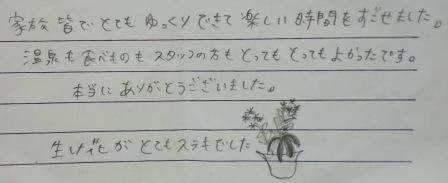 家族皆でとてもゆっくりできて楽しい時間をすごせました。
温泉も食べものもスタッフの方もとってもとってもよかったです。
本当にありがとうございました。
生け花がとてもステキでした